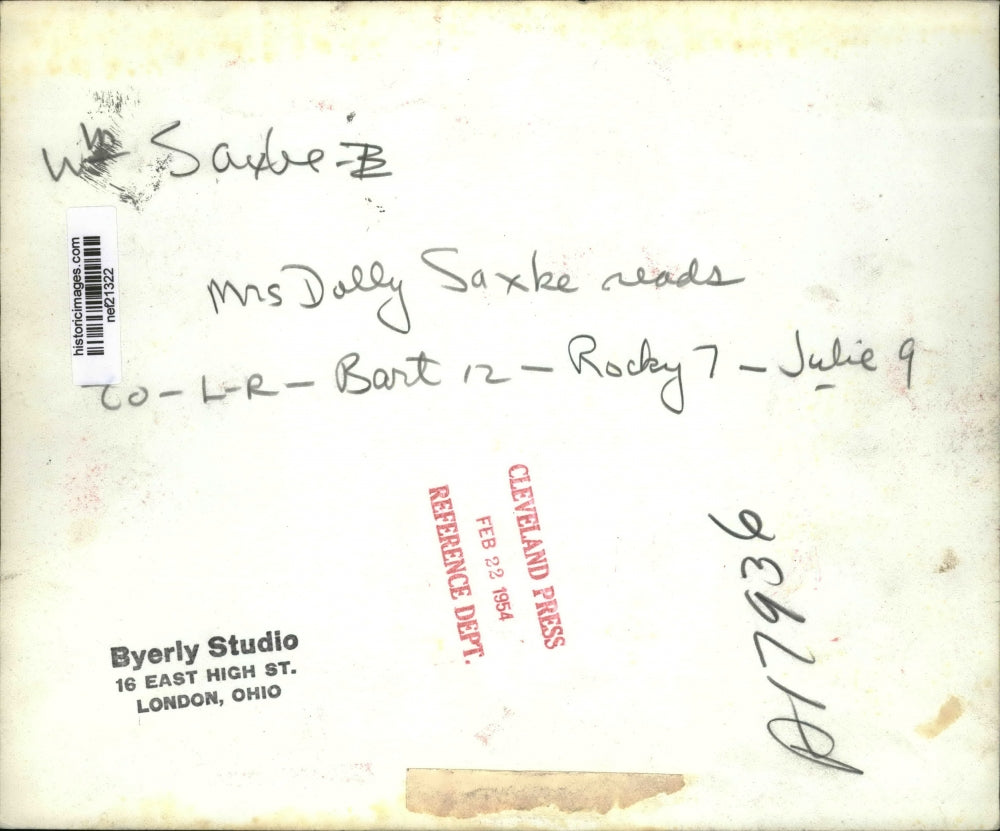 Wm Saxbe-B
historicimages.com
nef21322
Mrs Dolly Saxbe reads
to - L-R - Bart 12 - Rocky 7 - Julie 9
CLEVELAND PRESS
FEB 22 1954
REFERENCE DEPT.
A17936
Byerly Studio
16 EAST HIGH ST.
LONDON, OHIO